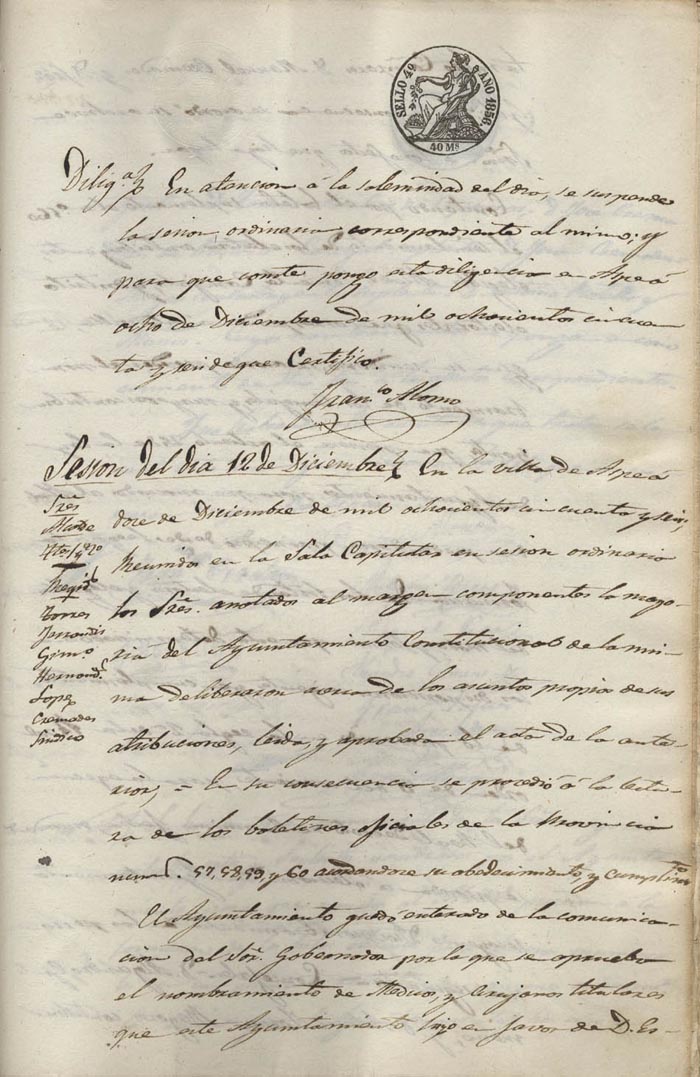 SELLO 4º AÑO 1856.
40 Ms
Diligª En atencion á la solemnidad del dia, se suspende
la sesion ordinaria correspondiente al mismo; y
para que conste pongo esta diligencia en Aspe á
ocho de Diciembre de mil ochocientos cincuen
ta y seis de que Certifico.
Franco Alonso
Sesion del dia 12 de Diciembre En la villa de Aspe á
doce de Diciembre de mil ochocientos cincuenta y seis;
Reunidos en la Sala Capitular en sesion ordinaria
los Sres. anotados al margen componentes la mayo-
ria del Ayuntamiento Constitucional de la mis-
ma deliberaron acerca de los asuntos propios de sus
atribuciones, leida, y aprobada el acta de la ante-
rior, = En su consecuencia se procedió á la lectu-
ra de los boletines oficiales de la Provincia
nums. 57, 58, 59, y 60 acordandose su obedecimiento, y cumplimto
El Ayuntamiento quedó enterado de la comunica-
cion del Sor. Gobernador por la que se aprueba
el nombramiento de Medicos, y Cirujanos titulares
que este Ayuntamiento hizo en favor de D. Es-
Sres
Alcde
Regid
Torres
Ferrandis
Gimo
Hernands
Lopez
Cremades
Sindico